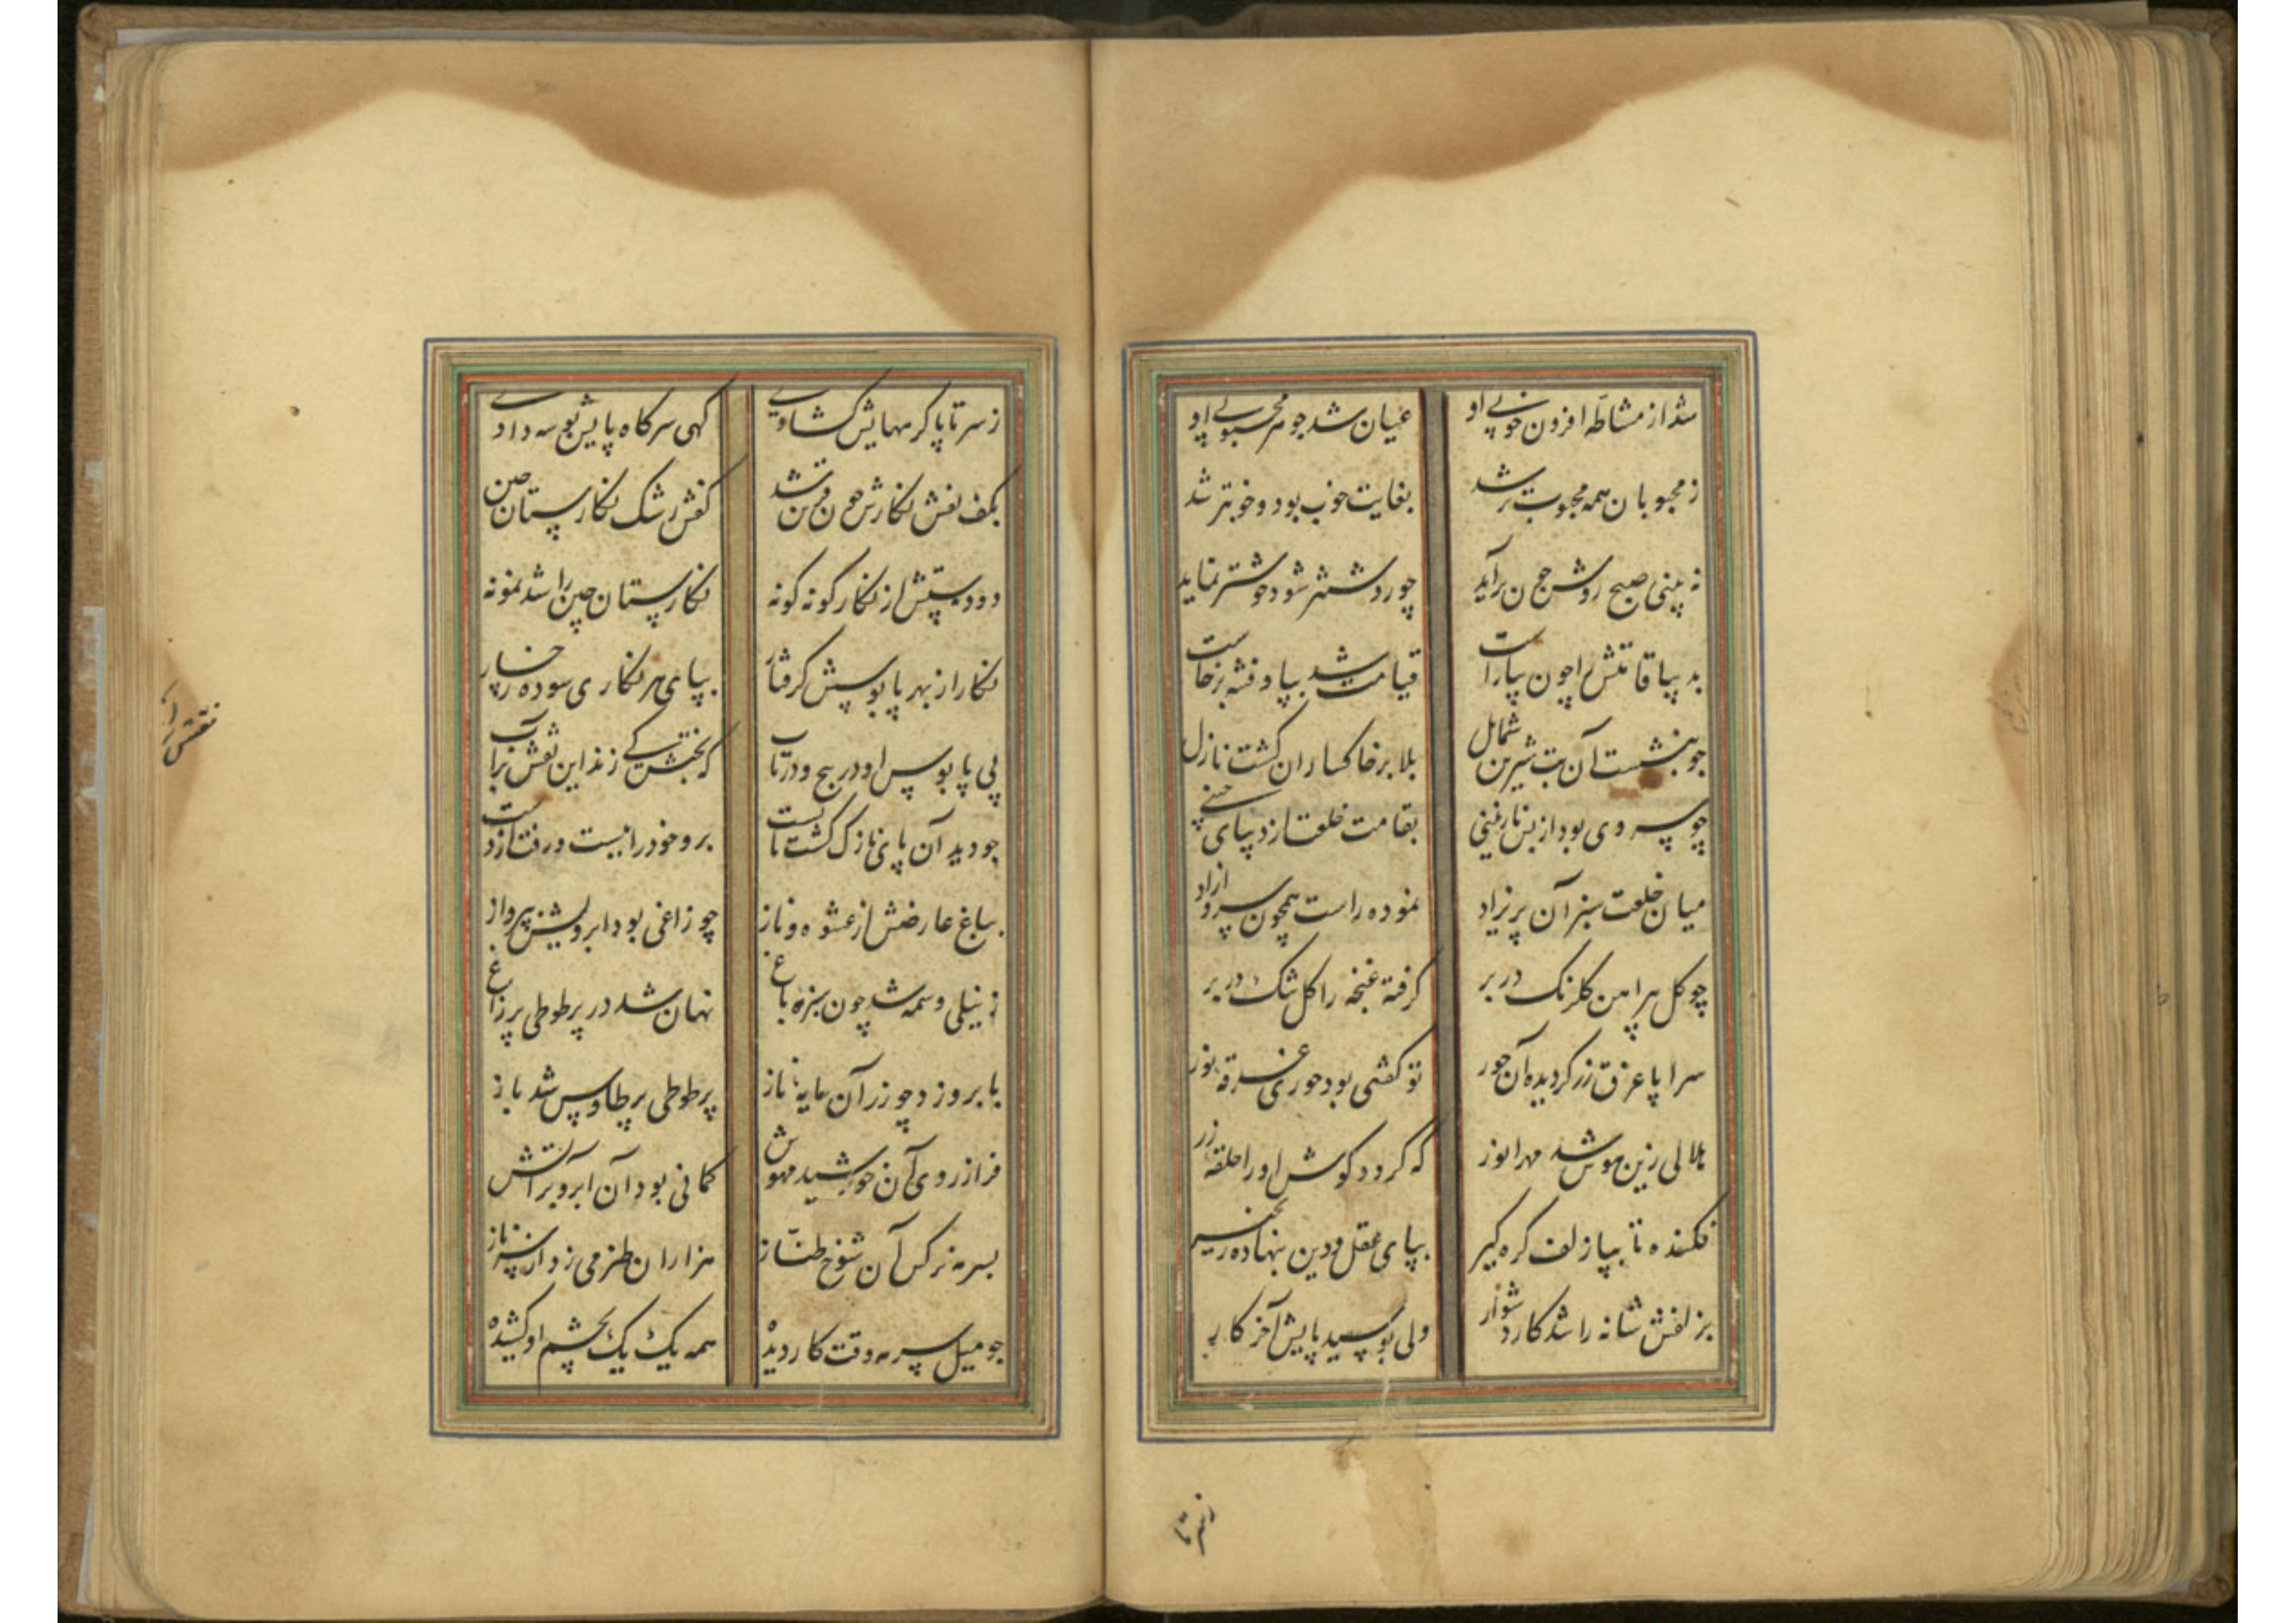 شد از مشاطه افزون خوبی او عیان شد جوهر محبوبی او
ز محبوبان همه محبوبتر شد بغایت خوب بود و خوبتر شد
نه بینی صبح روشن چون برآید چو روشنتر شود خوشتر نماید
بد یبا قامتش را چون بیاراست قیامت شد بپا و فتنه برخاست
چو بنشست آن بت شیرین شمایل بلا بر خاکساران گشت نازل
چو سروی بود از بس نازنینی بقامت خلعت از دیبای چینی
میان خلعت سبز آن پریزاد نموده راست همچون سرو ازاد
چو کل پیراهن کلرنک در بر گرفته غنچه را کل تنک در بر
سراپا غرق زر گردیده آن حور تو گفتی بود حوری غرقه نور
هلالی زین هوس شد مهر انور که گردد گوش او را حلقه زر
فکنده تا بپا زلف گره گیر بپای عقل و دین بنهاده زنجیر
بزلفش شانه را شد کار دشوار ولی بوسید پایش آخر کار
ز سر تا
ز سر تا پا گرمهایش گشادی گهی سر گاه پایش بوسه دادی
بکف نقش نگارش چون قرین شد کفش رشک نگارستان چین
دو دستش از نگار گونه گونه نگارستان چین را شد نمونه
نگار از بهر پابوسش گرفتار بپای هر نگاری سوده رخسار
پی پابوس او در پیچ و در تاب که بختش کی زند این نقش بر آب
چو دید آن پای نازک گشت پا بست برو خود را ببست و رفت از دست
بباغ عارضش از عشوه و ناز چو زاغی بود ابرویش بپرواز
ز نیلی وسمه شد چون سبزه باغ نهان شد در پر طوطی پر زاغ
بابرو زد چو زر آن مایه ناز پر طوطی پر طاوس شد باز
فراز روی آن خورشید مهوش کمانی بود آن ابرو بر آتش
بسرمه نرگس آن شوخ طناز هزاران طنز می زد از سر ناز
چو میل سرمه وقت کار دیده همه یک یک بچشم او کشیده
نقش را